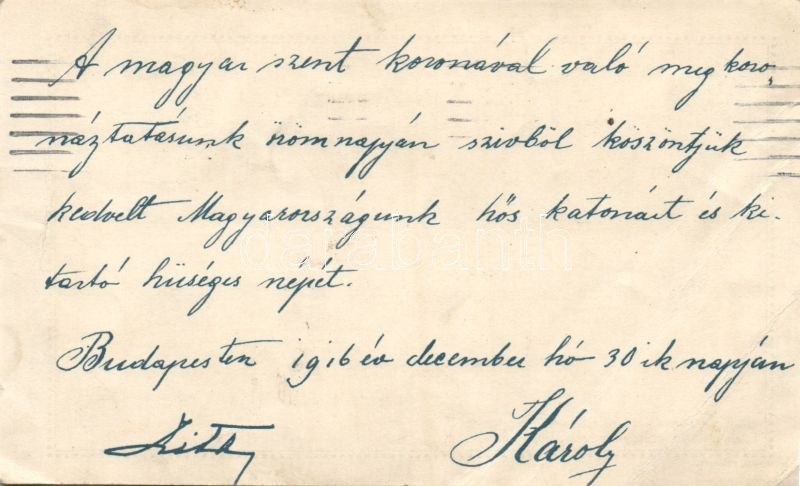 A magyar szent koronával való megkoro-
náztatásunk örömnapján szivből köszöntjük
kedvelt Magyarországunk hős katonáit és ki-
tartó hüséges népét.
Budapesten 1916 év december hó 30 ik napján
Zita Károly
darabanth